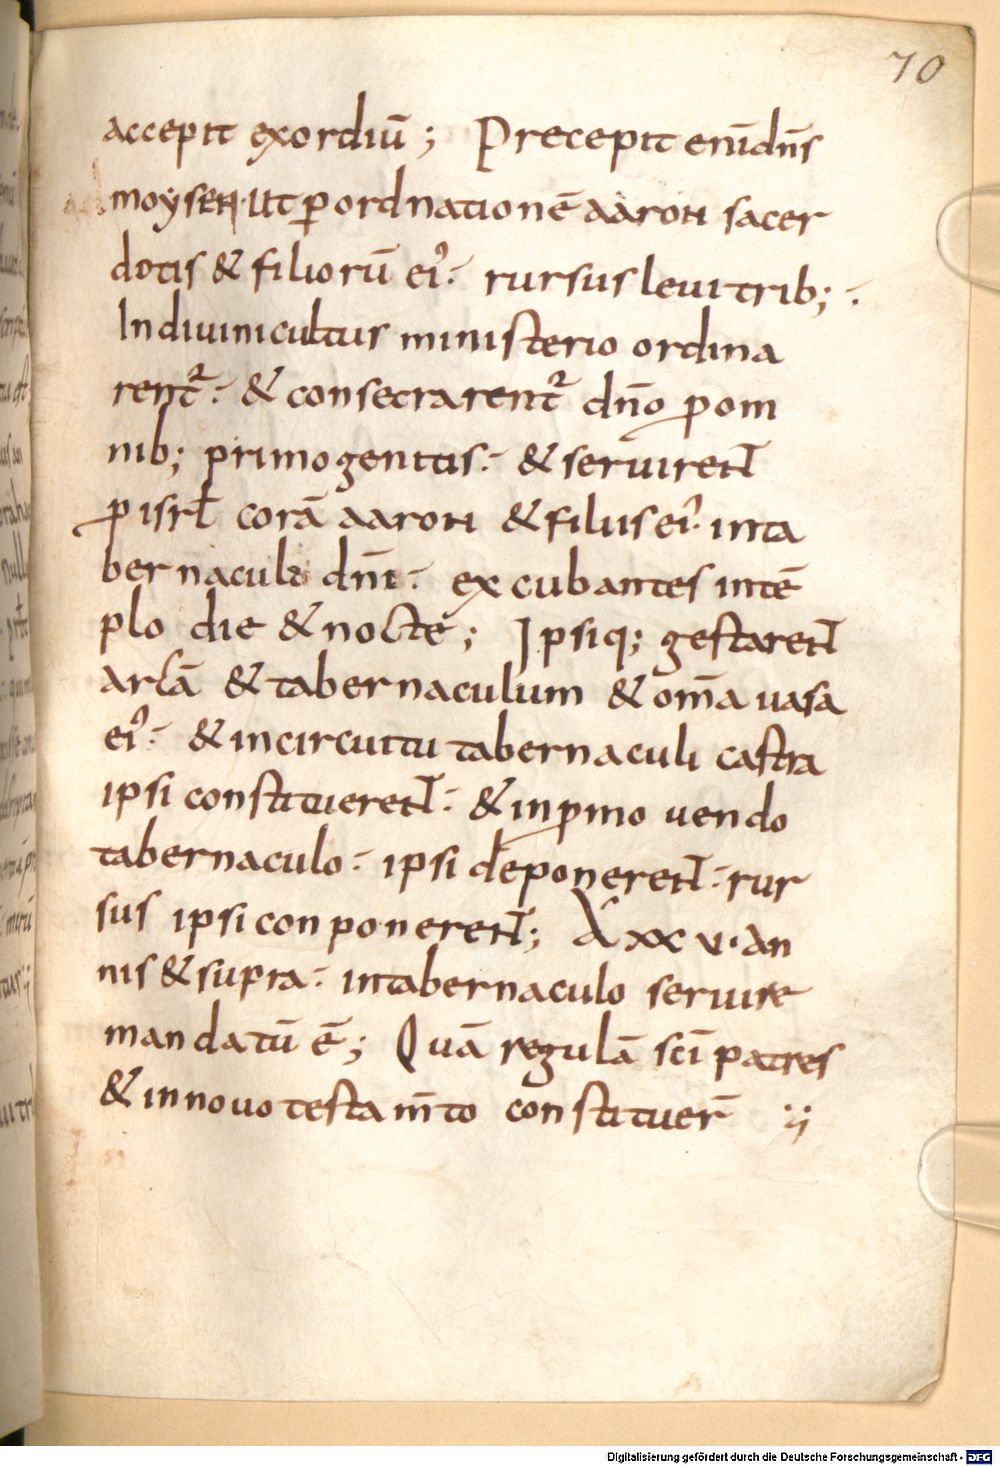 70
accepit exordiū; Precepit eni̅ dn̅s
moysen· ut ꝑ ordnationē aaron sacer
dotis & filiorū ei᾽· rursus leui trib;·
In diuini cultus ministerio ordina
rent᷑· & consecrarent᷑ dn̅o ꝓ om
nib; primogenitis· & seruirent
ꝓ isrł corā aaron & filiis ei᾽· in ta
bernaculo dn̅i· excubantes in tē
plo die & nocte; Ipsiq; gestarent
arcā & tabernaculum & om̅a uasa
ei᾽· & in circuitu tabernaculi castra
ipsi constituerent· & in ꝓmo uendo
tabernaculo· ipsi deponerent· rur
sus ipsi conponerent; A xxv· an
nis & supra· in tabernaculo seruire
mandatū ē; Quā regulā sci̅ patres
& in nouo testam̅to constituer̅
Digitalisierung gefördert durch die Deutsche Forschungsgemeinschaft - DFG